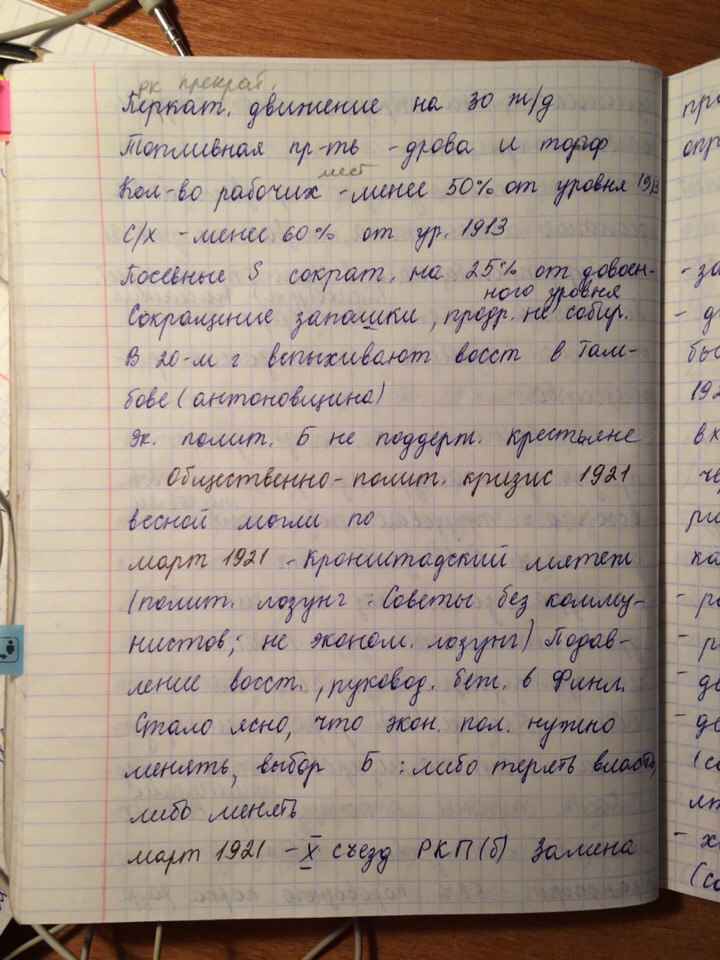 прекрат.
движение на 30 ж/д
Топливная пр-ть - дрова и торф
мест
Кол-во рабочих - менее 50% от уровня 1913
С/х - менее 60% от ур. 1913
Посевные S сократ. на 25% от довоен-
ного уровня
Сокращение запашки, продр. не собир.
В 20-м г вспыхивают восст в Там-
бове (антоновщина)
Эк. полит. Б не поддерж. крестьяне
Общественно-полит. кризис 1921
весной могли по
март 1921 - Кронштадский мятеж
(полит. лозунг: Советы без комму-
нистов, не эконом. лозунг) Подав-
ление восст., руковод. беж. в Финл.
Стало ясно, что экон. пол. нужно
менять, выбор Б: либо терять власть,
либо менять
март 1921 - X съезд РКП(б) Замена